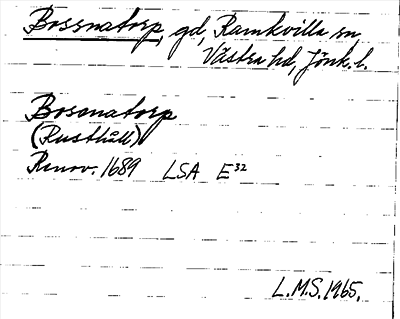 Bossnatorp, gd, Ramkvilla sn
Västra hd, Jönk. l.
Bosonatorp
(Rusthåll)
Renov. 1689 LSA E³²
L.M.S. 1965.